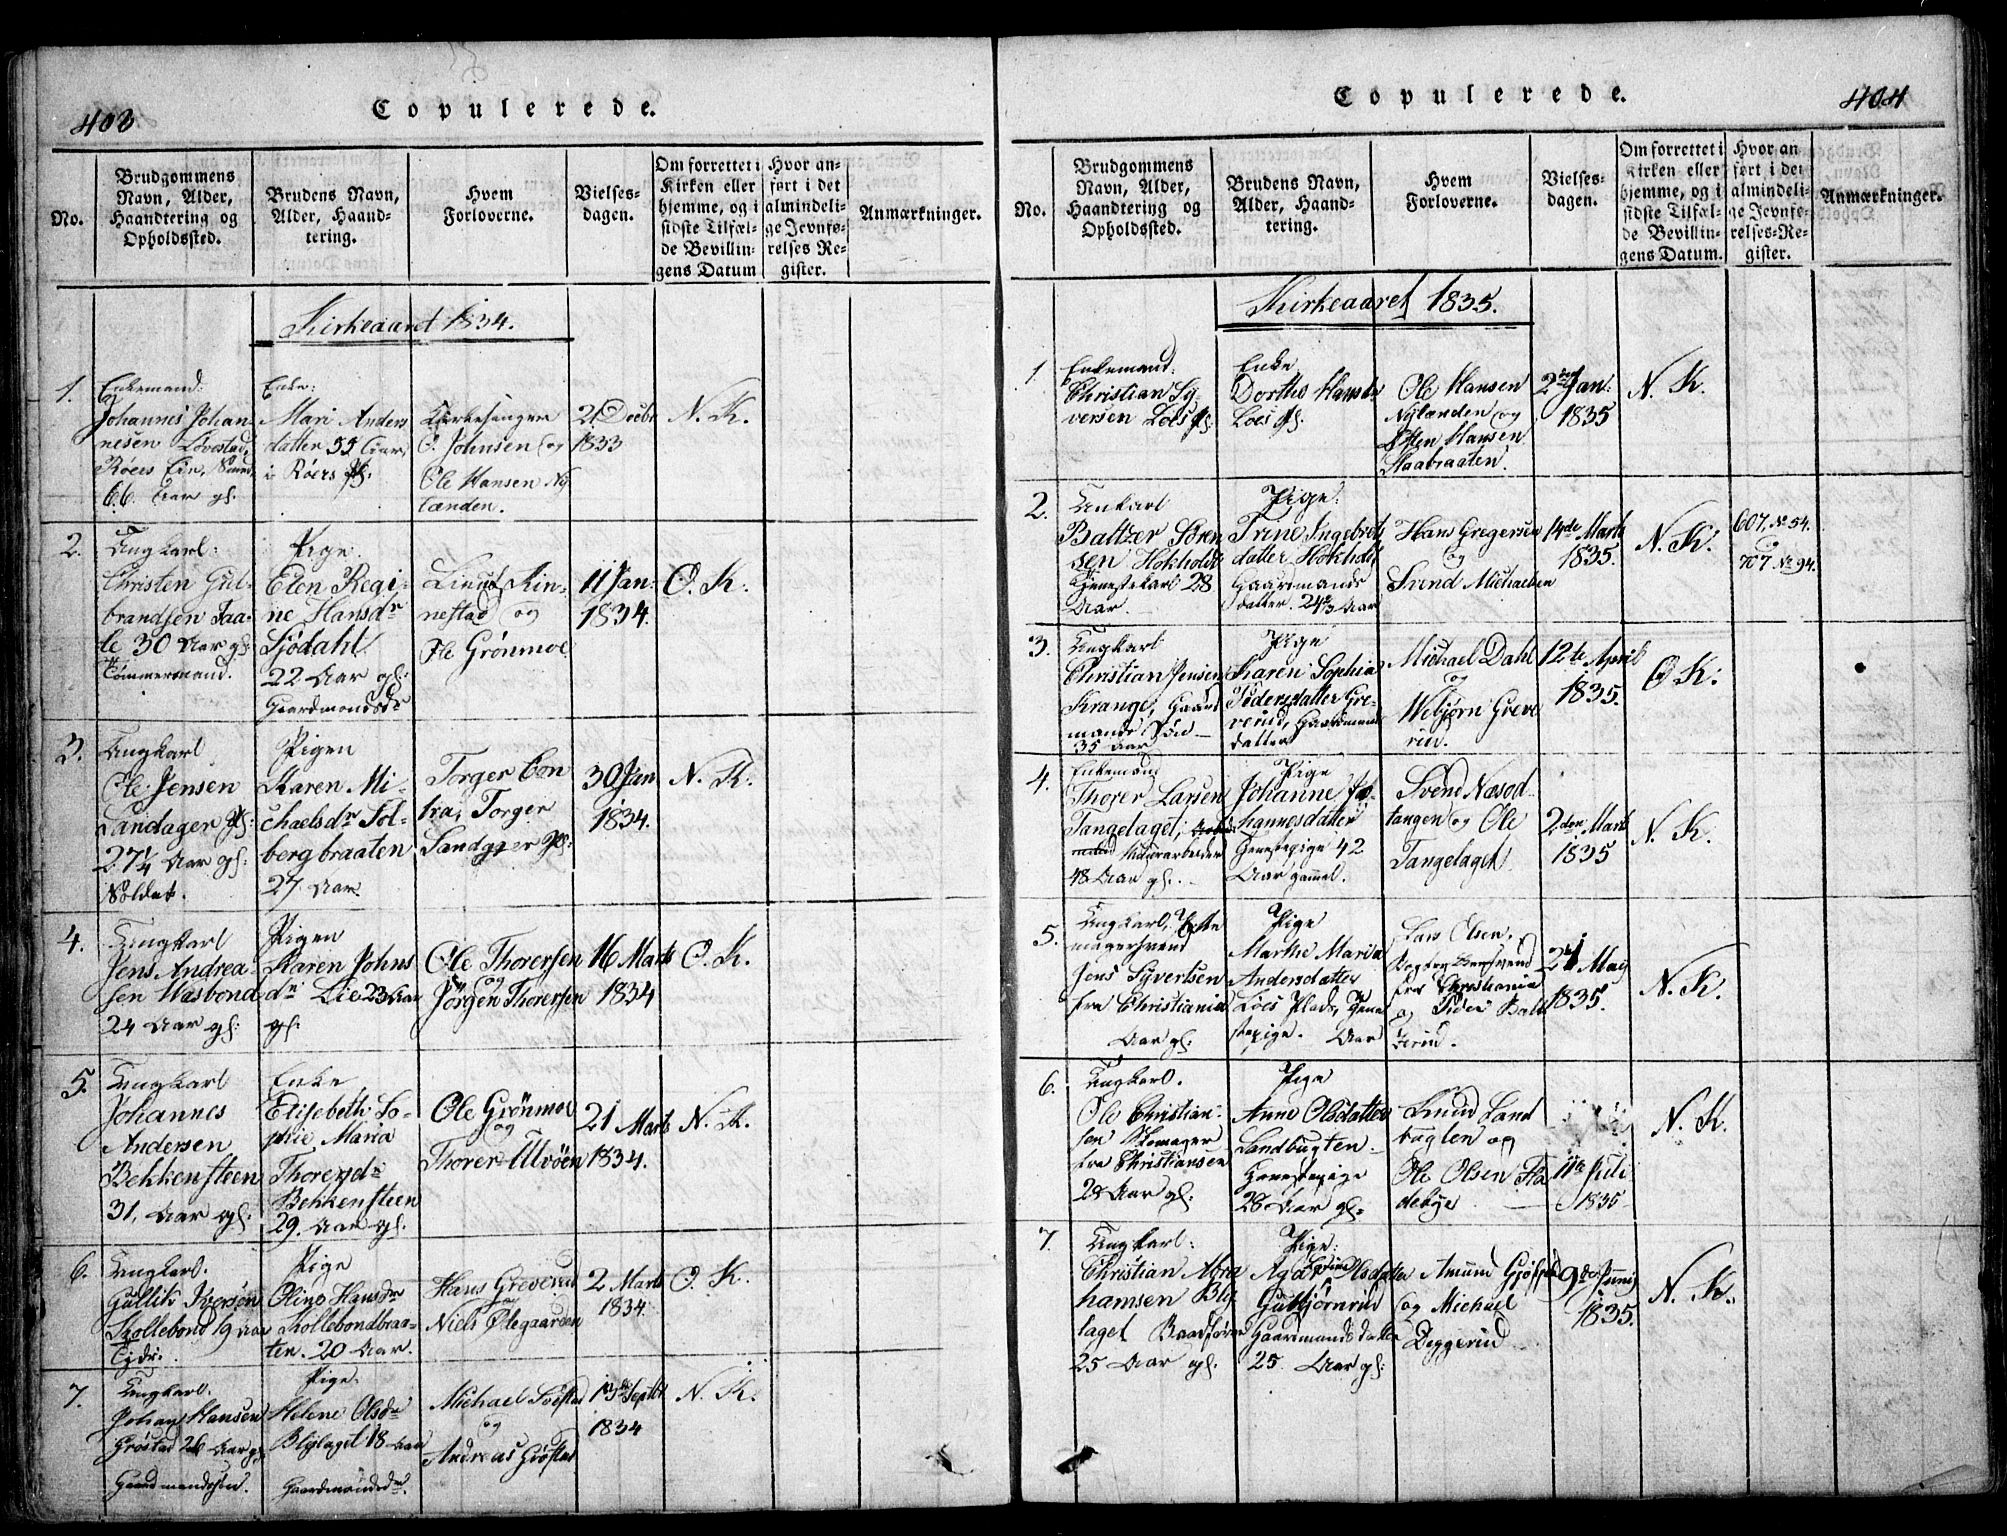 403
Copulerede.
No.
Brudgommens
Navn, Alder,
Haandtering og
Opholdssted.
Brudens Navn,
Alder, Haand-
tering.
Hvem
Forloverne.
Vielses-
dagen.
Om forrettet i
Kirken eller
hjemme, og i
sidste Tilfæl-
de Bevillin-
gens Datum
Hvor an-
ført i det
almindeli-
ge Jevnfø-
relses Re-
gister.
Anmærkninger.
Kirkeaaret 1834.
1.
Enkemand:
Johannes Johan-
nesen Lovestad,
Röers Eie,
66 Aar gl.
Enke:
Mari Anders
datter 55 Aar,
i Röers Pl.
Kirkesanger
O. Johnsen og
Ole Hansen Ny
lænden.
21 Decbr
1833
N. K.
2.
Ungkarl:
Christen Gul-
brandsen Faa-
le 30 Aar gl:
Tömmermand.
Pige.
Elen Regi-
ne Hansdr
Sjödahl
22 Aar gl:
Gaardmandsdr
Knud Kin-
nestad og
Ole Grönmoe
11 Jan:
1834.
O. K.
3.
Ungkarl
Ole Jensen
Sandager Pl:
27¼ Aar gl:
Soldat.
Pigen
Karen Mi-
chaelsdr Sol-
bergbraaten
27 Aar
Torger Con
tra, Torger
Sandager Pl:
30 Jan
1834.
N. K.
4.
Ungkarl
Jens Andrea-
sen Wasbond
24 Aar gl:
Pigen
Karen Johns
dr Lie 23 Aar
gl.
Ole Thorersen
og
Jörgen Thorersen
16 Marts
1834
O. K.
5.
Ungkarl
Johannes
Andersen
Bekkensteen
31, Aar gl:
Enke
Elisebeth So-
phie Maria
Thorersdr
Bekkensteen
29. Aar gl.
Ole Grönmoe
og
Thorer Ulvöen
21 Marts
1834.
N. K.
6.
Ungkarl.
Gullik Iversen
Skollebond 19 Aar
Pige
Oline Hansdr
Skollebondbraa-
ten. 20 Aar.
Hans Greverud
Niels Ödegaarden
2 Marts
1834
O. K.
7.
Ungkarl.
Johans Hansen
Gröstad 26 Aar gl
Gaardmandssön.
Pige.
Helene Olsdr
Blylaget 18 Aar
Gaardmandsdr.
Michael Svestad
og
Andreas Gröstad
13de Septbr
1834
N. K.
404
Copulerede.
No.
Brudgommens
Navn, Alder,
Haandtering og
Opholdssted.
Brudens Navn,
Alder, Haand-
tering.
Hvem
Forloverne.
Vielses-
dagen.
Om forrettet i
Kirken eller
hjemme, og i
sidste Tilfæl-
de Bevillin-
gens Datum.
Hvor an
ført i det
almindeli-
ge Jevnfø-
relses-Re-
gister.
Anmærkninger.
Kirkeaaret 1835.
1.
Enkemand:
Christian Sy-
versen Loes Pl.
Enke
Dorthe Hansdr
Loes Pl.
Ole Hansen
Nylænden og
Hansen
2den Jan:
1835
N. K.
2.
Unkarl
Baltzer Sören
sen Hokholdt
Tjenestekarl 28
Aar
Pige:
Trine Ingebret
datter Hokholdt
Gaardmands
datter. 24⅔ Aar
Hans Gregersen
og
Svend Michaelsen
14de Marts
1835.
N. K.
607. No 54.
707 No 94.
3.
Ungkarl
Christian Jensen
Krange, Gaard
mands Sön
35 Aar
Pige
Karen Sophia
Pedersdatter Gre-
verud, Gaardmands
datter
Michael Dahl
og
Webjörn Greve
rud.
12te April
1835.
O K.
4.
Enkemand
Thorer Larsen
Tangelaget,
Muurarbeider
48 Aar gl.
Pige
Johanne Jo-
hannesdatter
Tjenestepige 42
Aar gammel.
Svend Næsod-
tangen og Ole
Tangelaget
2den Marts
1835
N. K.
5.
Ungkarl,
magersvend
Jens Syvertsen
fra Christiania
Aar gl:
Pige
Marthe Maria
Andersdatter
Loes Plads, Tjene
stepige. Aar
Lars Olsen,
fra Christiania
og Peder
24 May
1835.
N. K.
6.
Ungkarl.
Ole Christian-
sen Skomager
fra Christiansen
28 Aar gl.
Pige
Anne Olsdatter
Sandbugten
Tjenestepige
28 Aar gl.
Knud Sand
bugten og
Ole Olsen Fla
debye
11te Juli
1835
N. K.
7.
Ungkarl:
Christian Abra
hamsen Bly
laget Baadförer
25 Aar gl.
Pige:
Agathe Karine Olsdatter
Gulbjörnrud
Gaardmandsdatter
25 Aar gl:
Amund Gjöfsjö
og Michael
Deggerud
9de Junij
1835.
N. K.